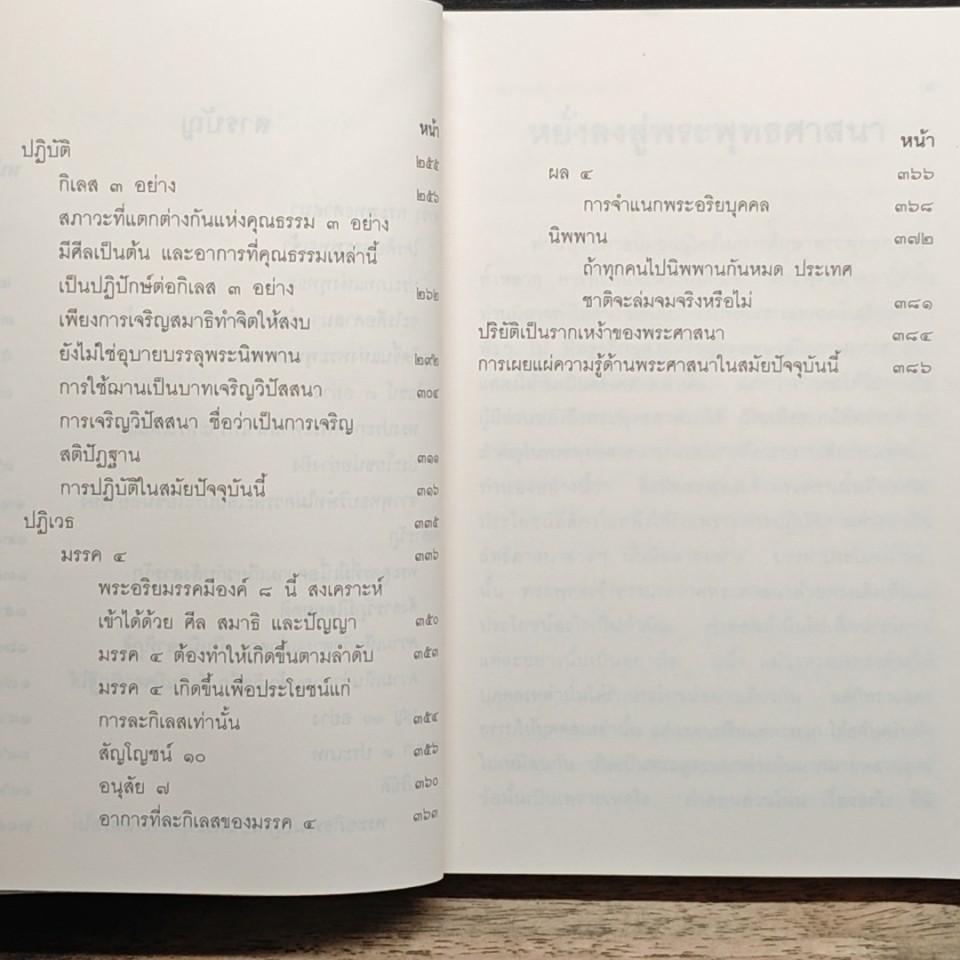 หน้า
ปฏิบัติ ๒๕๕
กิเลส ๓ อย่าง ๒๕๖
สภาวะที่แตกต่างกันแห่งคุณธรรม ๓ อย่าง
มีศีลเป็นต้น และอาการที่คุณธรรมเหล่านี้
เป็นปฏิปักษ์ต่อกิเลส ๓ อย่าง ๒๖๒
เพียงการเจริญสมาธิทำจิตให้สงบ
ยังไม่ใช่อุบายบรรลุพระนิพพาน ๒๙๒
การใช้ฌานเป็นบาทเจริญวิปัสสนา ๓๐๔
การเจริญวิปัสสนา ชื่อว่าเป็นการเจริญ
สติปัฏฐาน ๓๑๑
การปฏิบัติในสมัยปัจจุบันนี้ ๓๑๖
ปฏิเวธ ๓๓๕
มรรค ๔ ๓๓๖
พระอริยมรรคมีองค์ ๘ นี้ สงเคราะห์
เข้าได้ด้วย ศีล สมาธิ และปัญญา ๓๕๐
มรรค ๔ ต้องทำให้เกิดขึ้นตามลำดับ ๓๕๓
มรรค ๔ เกิดขึ้นเพื่อประโยชน์แก่
การละกิเลสเท่านั้น ๓๕๔
สัญโญชน์ ๑๐ ๓๕๖
อนุสัย ๗ ๓๖๐
อาการที่ละกิเลสของมรรค ๔ ๓๖๑
หน้า
ผล ๔ ๓๖๖
การจำแนกพระอริยบุคคล ๓๖๘
นิพพาน ๓๗๒
ถ้าทุกคนไปนิพพานกันหมด ประเทศ
ชาติจะล่มจมจริงหรือไม่ ๓๘๑
ปริยัติเป็นรากเหง้าของพระศาสนา ๓๘๔
การเผยแผ่ความรู้ด้านพระศาสนาในสมัยปัจจุบันนี้ ๓๘๖